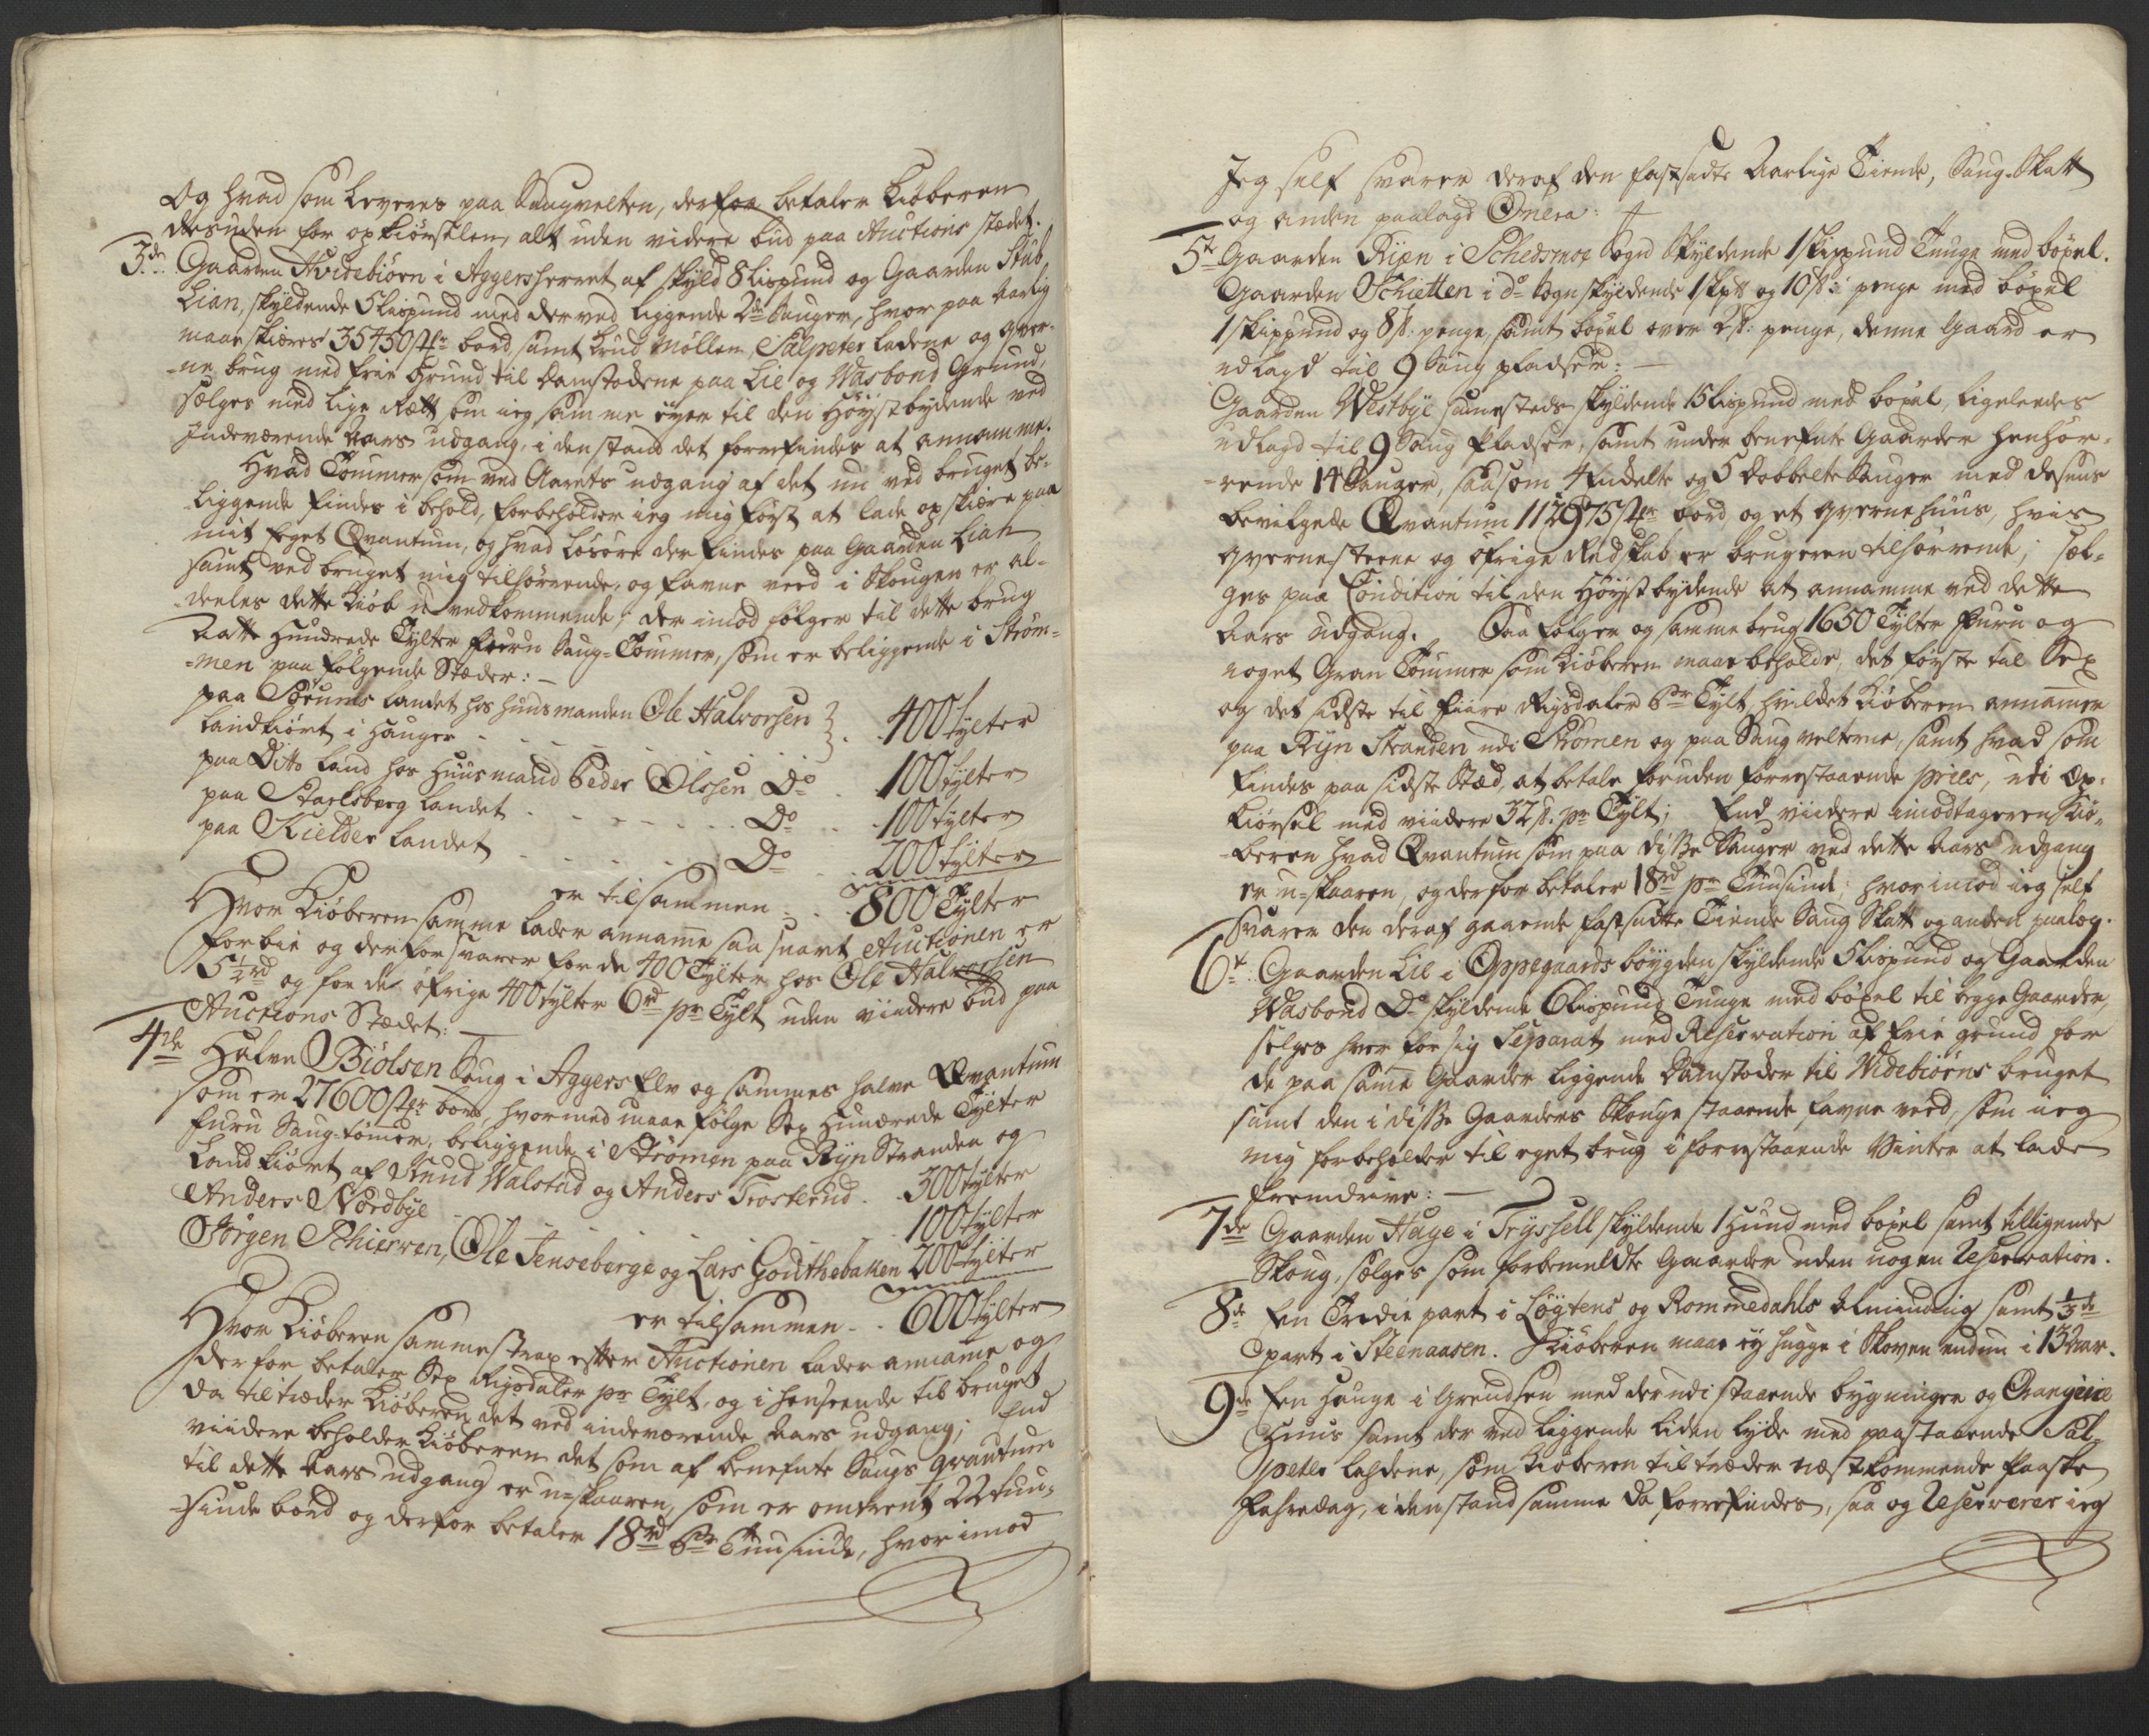 Og hvad som leveres paa Saugvelten, derfor betaler Kiöberen
desuden for opkiörselen, alt uden videre bud paa Auctions stædet.
3de: Gaarden Hvidebiörn i Aggersherret af skyld 8 Lispund og Gaarden Stub¸
Lian, skyldende 5 Lispund med derved liggende 2de Sauger, hvor paa aarlig
maae skiæres 35450 st:r bord, samt Krud Möllen, Salpeter Ladene og qver¸
ne brug med frie Grund til Damstodene paa Lie og Wasbond Grund,
sælges med lige Rætt som ieg samme eyer til den Höystbydende ved
Indeværende aars udgang, i den stand det forrefindes at annamme.
Hvad Tömmer som ved Aarets udgang af det nu ved bruget be¸
liggende findes i behold, forbeholder ieg mig först at lade opskiære paa
mit eget Qvantum, og hvad lösöre der findes paa Gaarden Lian
samt ved bruget mig tilhörende, og favne veed i Skougen er al¸
deeles dette Kiöb u-vedkommende; der imod fölger til dette brug
Aatte Hundrede Tylter furu Saug-Tömmer, som er beliggende i Ström¸
men paa fölgende Stæder: —
paa Sörums Landet hos huusmanden Ole Halvorsen
Landkiört i Hauger . . . 400 tylter
paa Ditto Land hos Huusmand Peder Olssen Do . . 100 tylter
paa Starlsberg Landet . . . Do . . 100 tylter
paa Kielder Landet . . . Do . . 200 tylter
er tilsammen . . 800 Tylter
Hvor Kiöberen samme lader anname saa snart Auctionen er
forbie og derfor svarer for de 400 Tylter hos Ole Halvorsen
5½ rd og for de öfrige 400 tylter 6 rd pr Tylt uden viidere bud paa
Auctions Stædet: —
4de Halve Biölsen Saug i Aggers Elv og sammes halve Qvantum
som er 27600 st:r bord, hvormed maae fölge Sex Hundrede Tylter
furu Saug-tömer, beliggende i Strömen paa Ryn Stranden og
Landkiört af Knud Walstad og Anders Trosterud . . 300 tylter
Anders Nordbye . . . 100 tylter
Jörgen Schierven, Ole Jenseberge og Lars Gouthebaken 200 tylter
er tilsammen . . 600 tylter
Hvor Kiöberen samme strax efter Auctionen lader anname og
derfor betaler Sex Rigsdaler pr Tylt, og i henseende til bruget
da tiltræder Kiöberen det ved indeværende aars udgang; End
viidere beholder Kiöberen det som af benefnte Saugs qvantum
til dette aars udgang er u-skaaren, som er omtrent 22 tuu¸
sinde bord og derfor betaler 18 rd Pr Tuusinde, hvorimod
Jeg self svarer deraf den fastsadte Aarlige Tiende, Saug-Skatt
og anden paalagd Onera:
5te Gaarden Ryen i Schedsmoe Sogn skyldende 1 Skippund Tunge med böxel.
Gaarden Schietten i do Sogn skyldende 1 Skp og 10 ß penge med böxel
1 Skippund og 8 ß: penge, samt böxel over 2 ß: penge, denne Gaard er
udlagd til 9 Saug pladser: —
Gaarden Westbye sammesteds skyldende 15 Lispund med böxel, ligeleedes
udlagd til 9 Saug Pladser, samt under benefnte Gaarder henhör¸
rende 14 Sauger, saasom 4 Enkelte og 5 Dobbelte Sauger med dessens
bevilgede Qvantum 112975 st:r bord og et qvernehuus, hvis
qvernesteene og öfrige Redskab er brugeren tilhörrende; sæl¸
ges paa Condition til den Höystbydende at annamme ved dette
Aars udgang. Saa fölger og samme brug 1650 Tylter Furu og
noget Gran Tömmer som Kiöberen maae beholde, det förste til Sex
og det sidste til fiire Rigsdaler Pr Tylt, hvilket Kiöberen annamer
paa Ryn Stranden udi Strömen og paa Saug velterne, samt hvad som
findes paa sidste stæd, at betale foruden forestaaende priis, udi Op¸
kiörsel med viidere 32 ß. pr Tylt; End viidere imodtager Kiö¸
beren hvad Qvantum som paa disse Sauger ved dette Aars udgang
er u-skaaren, og derfor betaler 18 rd pr Tuusinde; hvor imod ieg self
svarer den deraf gaaende fastsadte Tiende Saug Skatt og anden paalæg.
6te: Gaarden Lie i Oppegaards böygden skyldende 5 Lispund og Gaarden
Wasbond Do skyldende 6 Lispund Tunge med böxel til begge Gaarder,
sælges hver for sig Separat med Reservation af frie grund for
de paa same Gaarder liggende Damstoder til Widebiörns bruget
samt den i disse Gaarders Skouge staaende favne veed, som ieg
mig forbeholder til eget brug i forestaaende Vinter at lade
fremdrive: —
7de Gaarden Hage i Tryssell skyldende 1 Hund med böxel samt tilligende
Skoug, sælges som forbemeldte Gaarder uden nogen Reservation.
8de En Tredie part i Löytens og Rommedahls Almindinig samt 1/3de
part i Steenaasen. Kiöberen maae ey hugge i Skoven endnu i 13 Aar.
9de En Hauge i Grendsen med derudi staaende bygninger og Orangerie
Huus samt der ved liggende liden lycke med paastaaende Sal¸
peter Ladene, som Kiöberen tiltræder næstkommende Paaske
Fahredag, i den stand samme da forrefindes, saa og Reserverer ieg